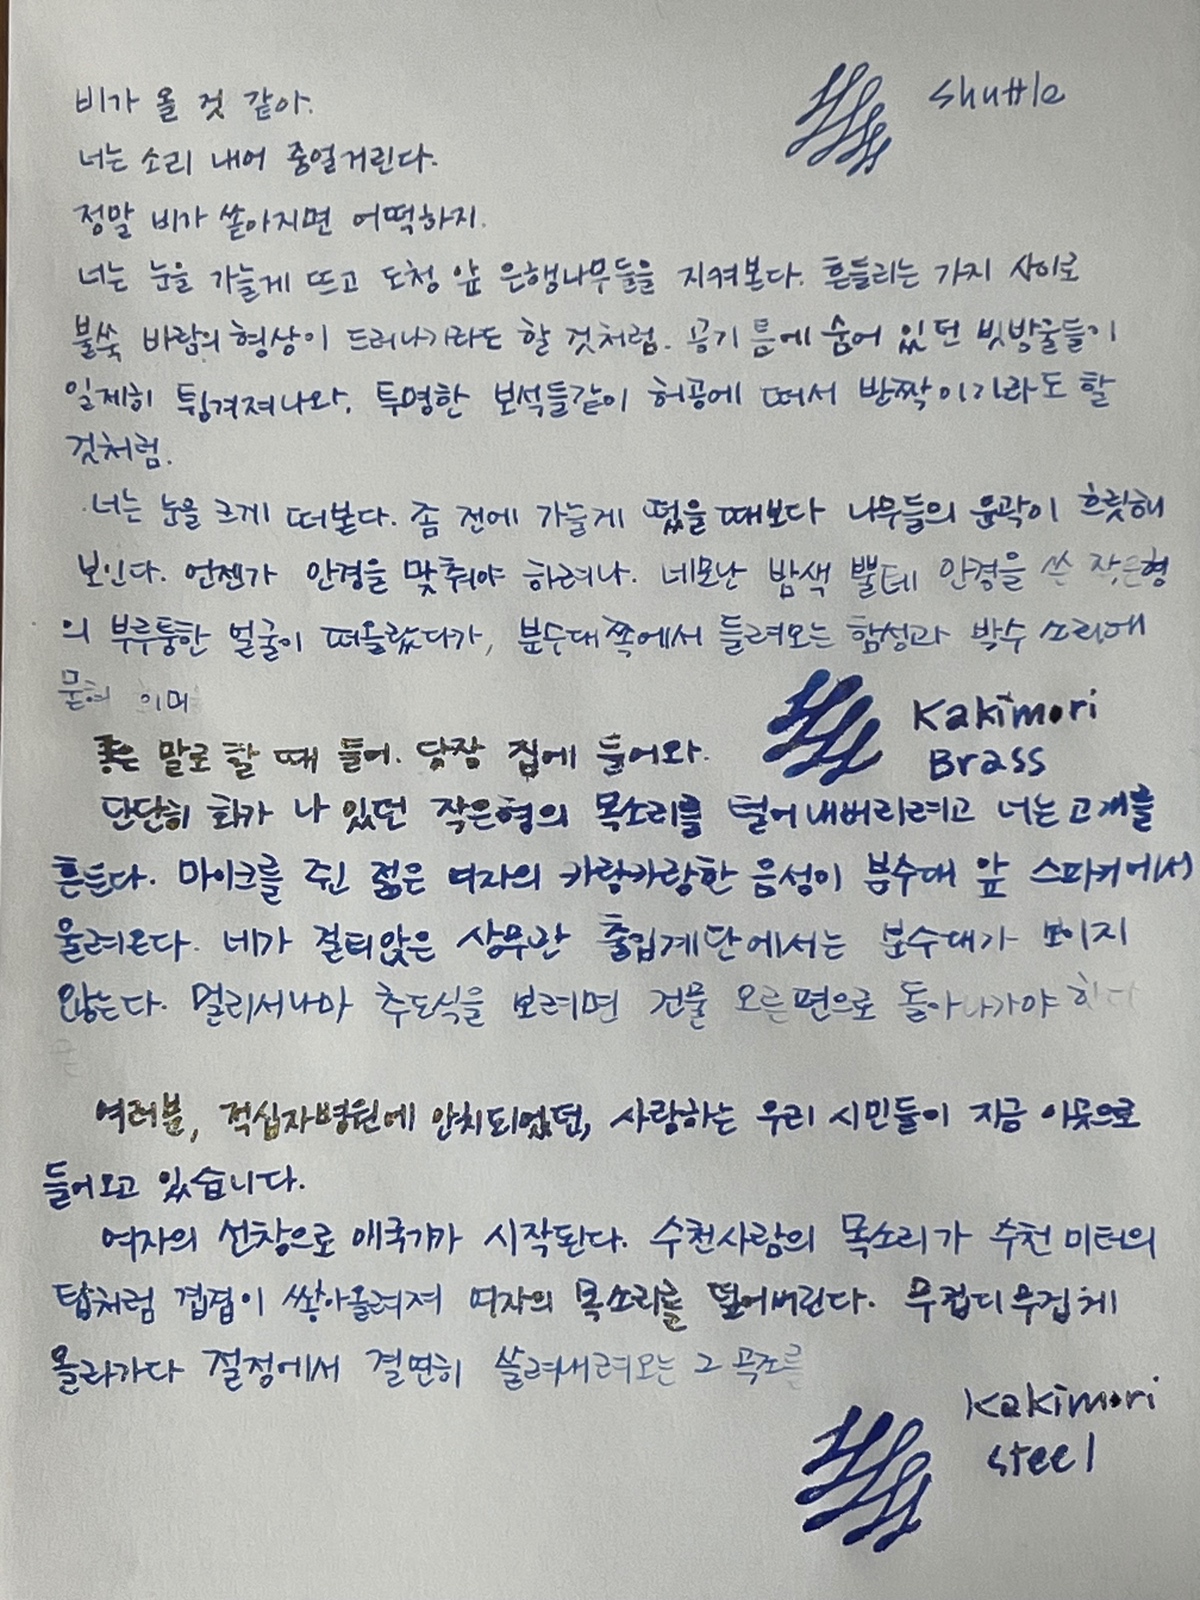 비가 올 것 같아.
shuttle
너는 소리 내어 중얼거린다.
정말 비가 쏟아지면 어떡하지.
너는 눈을 가늘게 뜨고 도청 앞 은행나무들을 지켜본다. 흔들리는 가지 사이로
불쑥 바람의 형상이 드러나기라도 할 것처럼. 공기 틈에 숨어 있던 빗방울들이
일제히 튕겨져나와, 투명한 보석들같이 허공에 떠서 반짝이기라도 할
것처럼.
너는 눈을 크게 떠본다. 좀 전에 가늘게 떴을 때보다 나무들의 윤곽이 흐릿해
보인다. 언젠가 안경을 맞춰야 하려나. 네모난 밤색 뿔테 안경을 쓴 작은형
의 부루퉁한 얼굴이 떠올랐다가, 분수대 쪽에서 들려오는 함성과 박수 소리에
묻혀 희미
Kakimori
Brass
좋은 말로 할 때 들어. 당장 집에 들어와.
단단히 화가 나 있던 작은형의 목소리를 털어내버리려고 너는 고개를
흔든다. 마이크를 쥔 젊은 여자의 카랑카랑한 음성이 분수대 앞 스피커에서
울려온다. 네가 걸터앉은 상무관 출입계단에서는 분수대가 보이지
않는다. 멀리서나마 추도식을 보려면 건물 오른편으로 돌아나가야 한다
여러분, 적십자병원에 안치되었던, 사랑하는 우리 시민들이 지금 이곳으로
들어오고 있습니다.
여자의 선창으로 애국가가 시작된다. 수천사람의 목소리가 수천 미터의
탑처럼 겹겹이 쌓아올려져 여자의 목소리를 덮어버린다. 무겁디무겁게
올라가다 절정에서 결연히 쓸려내려오는 그 곡조를
Kakimori
steel